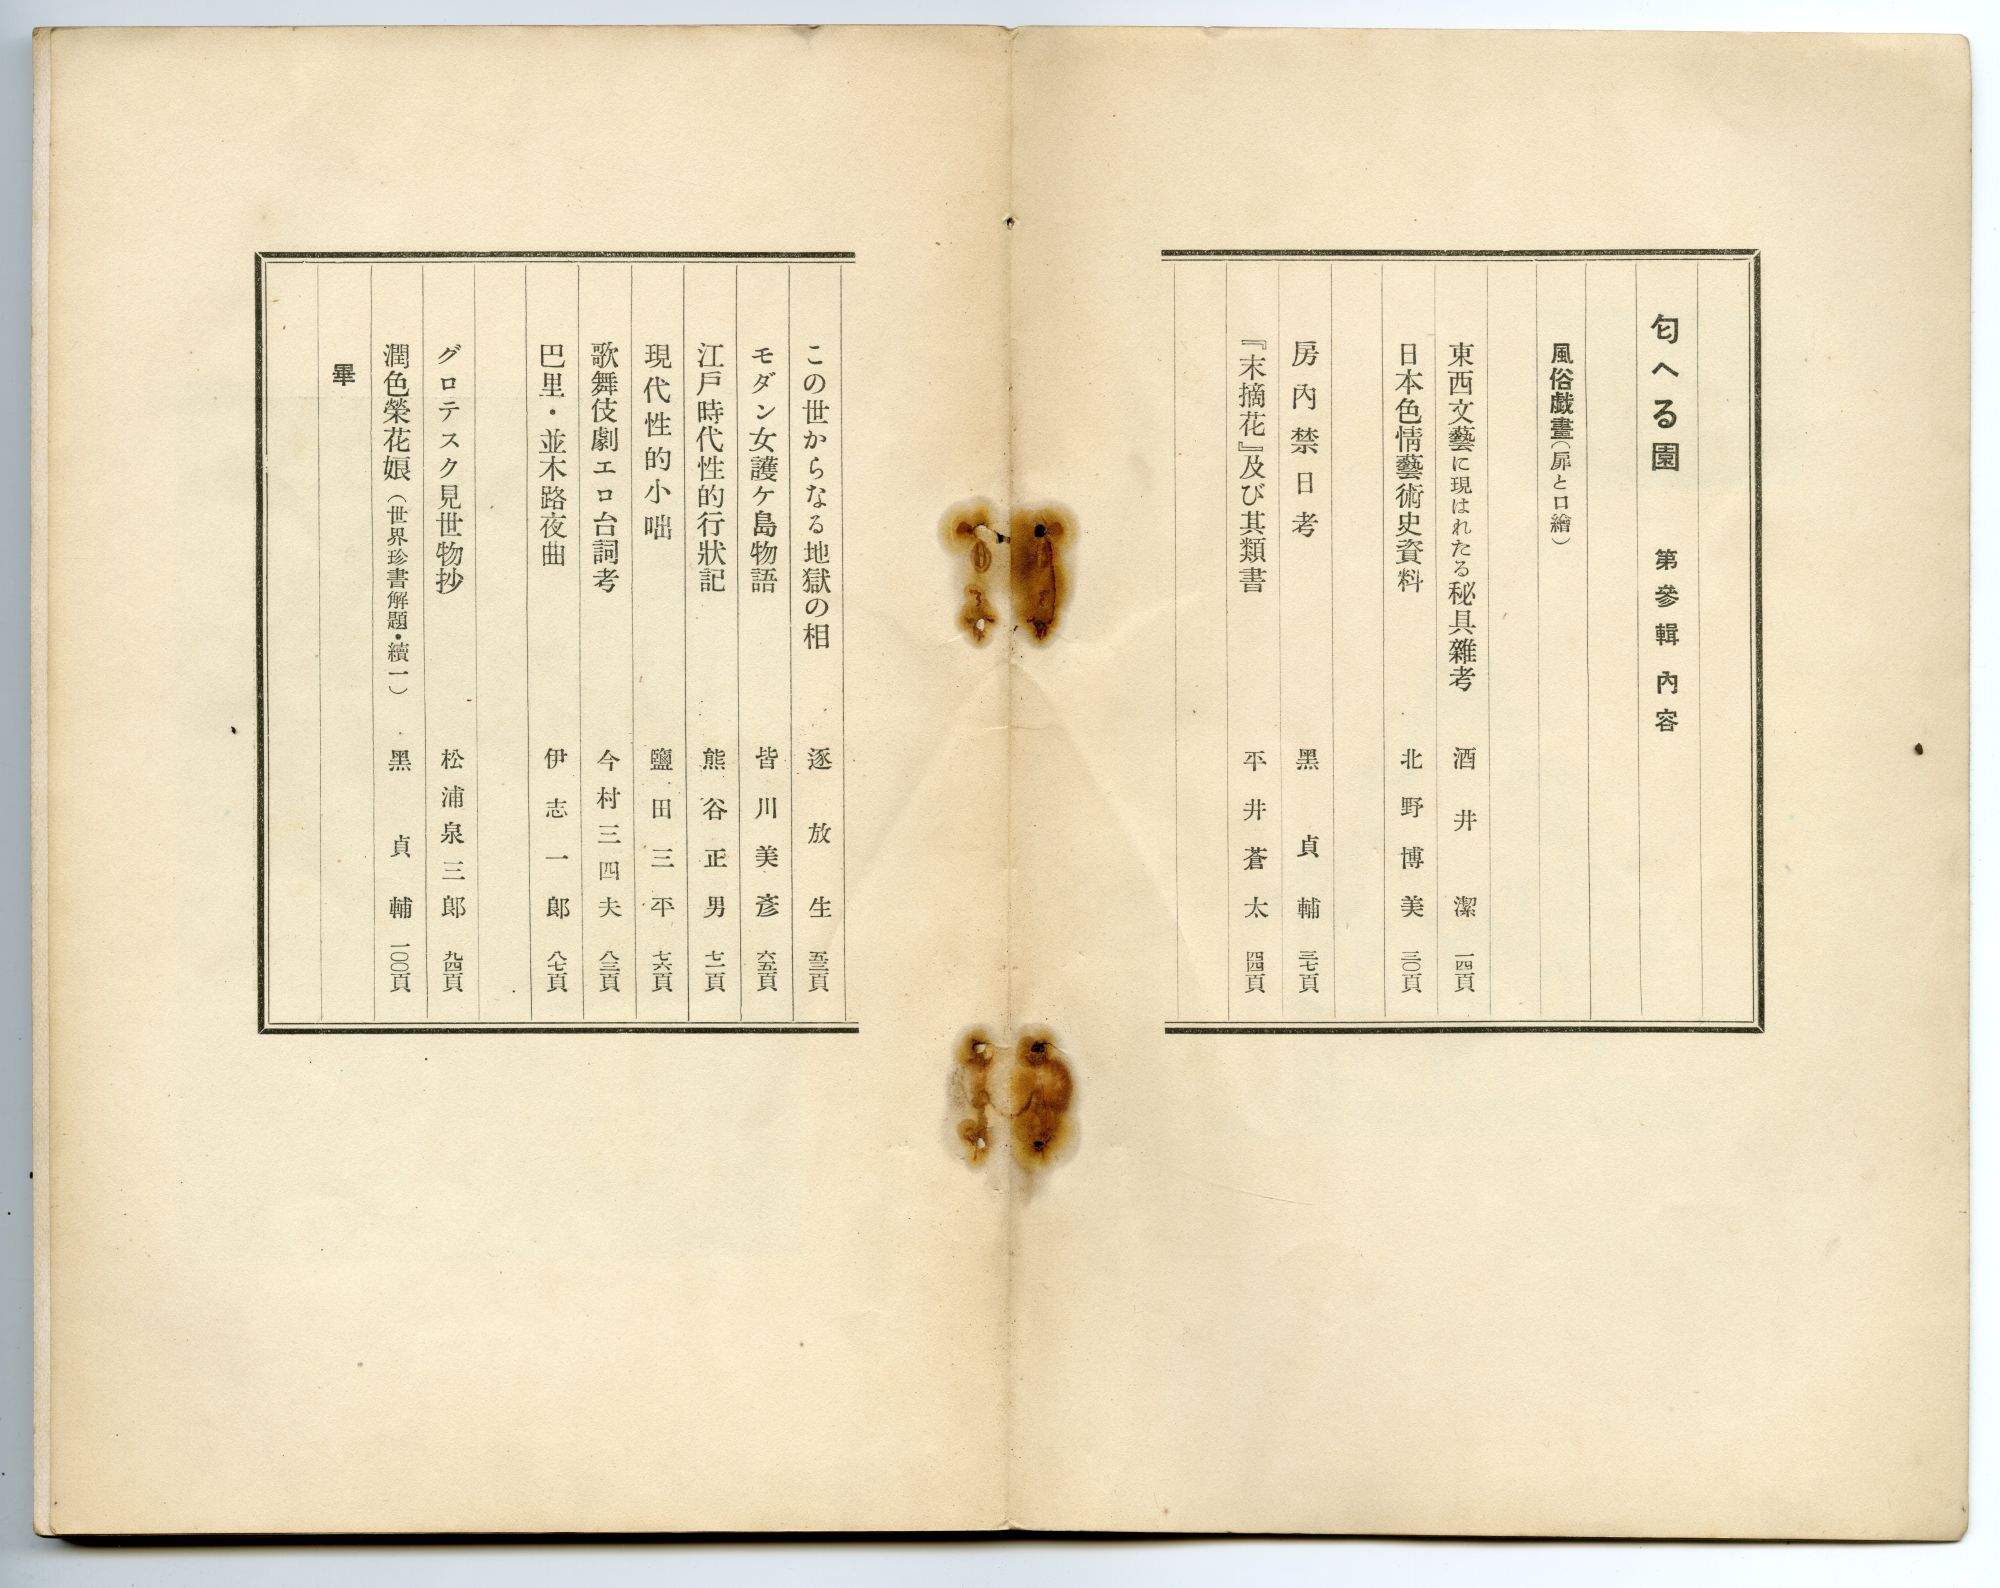 匂へる園　第參輯內容
風俗戲畫（扉と口繪）
東西文藝に現はれたる秘具雜考　酒井潔　一四頁
日本色情藝術史資料　北野博美　三〇頁
房內禁日考　黑貞輔　三七頁
『末摘花』及び其類書　平井蒼太　四四頁
この世からなる地獄の相　逐放生　五三頁
モダン女護ケ島物語　皆川美彥　六五頁
江戶時代性的行狀記　熊谷正男　七一頁
現代性的小咄　鹽田三平　七六頁
歌舞伎劇エロ台詞考　今村三四夫　八三頁
巴里・並木路夜曲　伊志一郎　八七頁
グロテスク見世物抄　松浦泉三郎　九四頁
潤色榮花娘（世界珍書解題・續一）　黑貞輔　一〇〇頁
畢